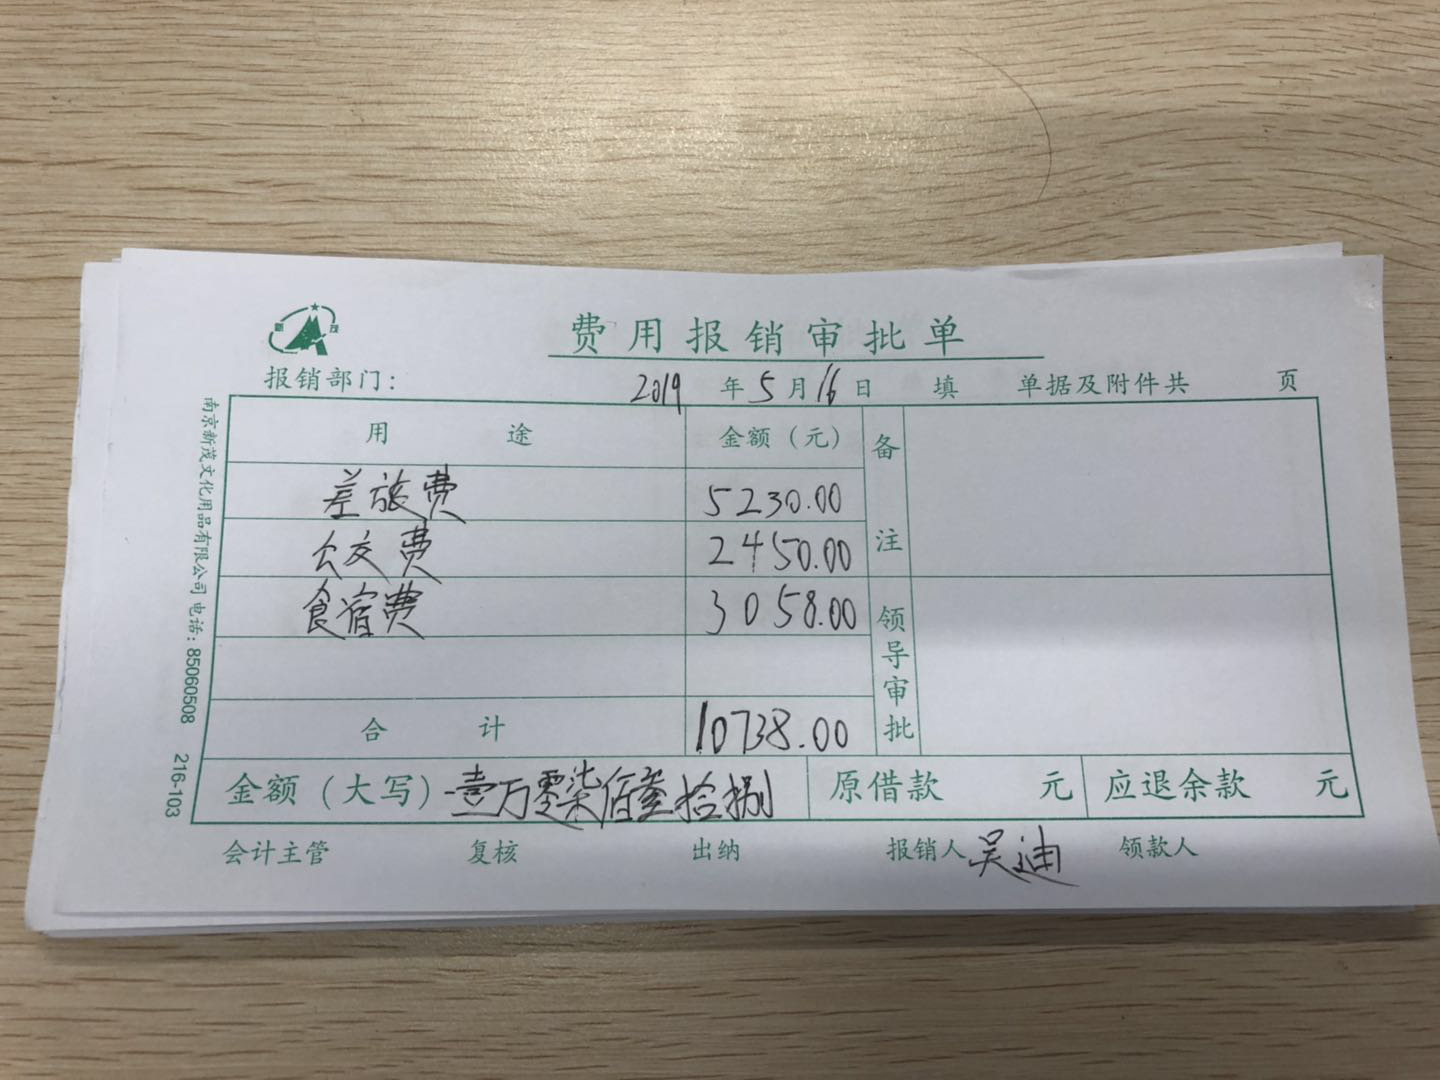 新 茂
费用报销审批单
报销部门： 2019 年 5 月 16 日 填 单据及附件共 页
用 途 金额（元） 备注
差旅费 5230.00
公交费 2450.00
食宿费 3058.00 领导审批
合 计 10738.00
金额（大写）壹万零柒佰叁拾捌 原借款 元 应退余款 元
会计主管 复核 出纳 报销人 吴迪 领款人
南京新茂文化用品有限公司 电话：85060508 216-103